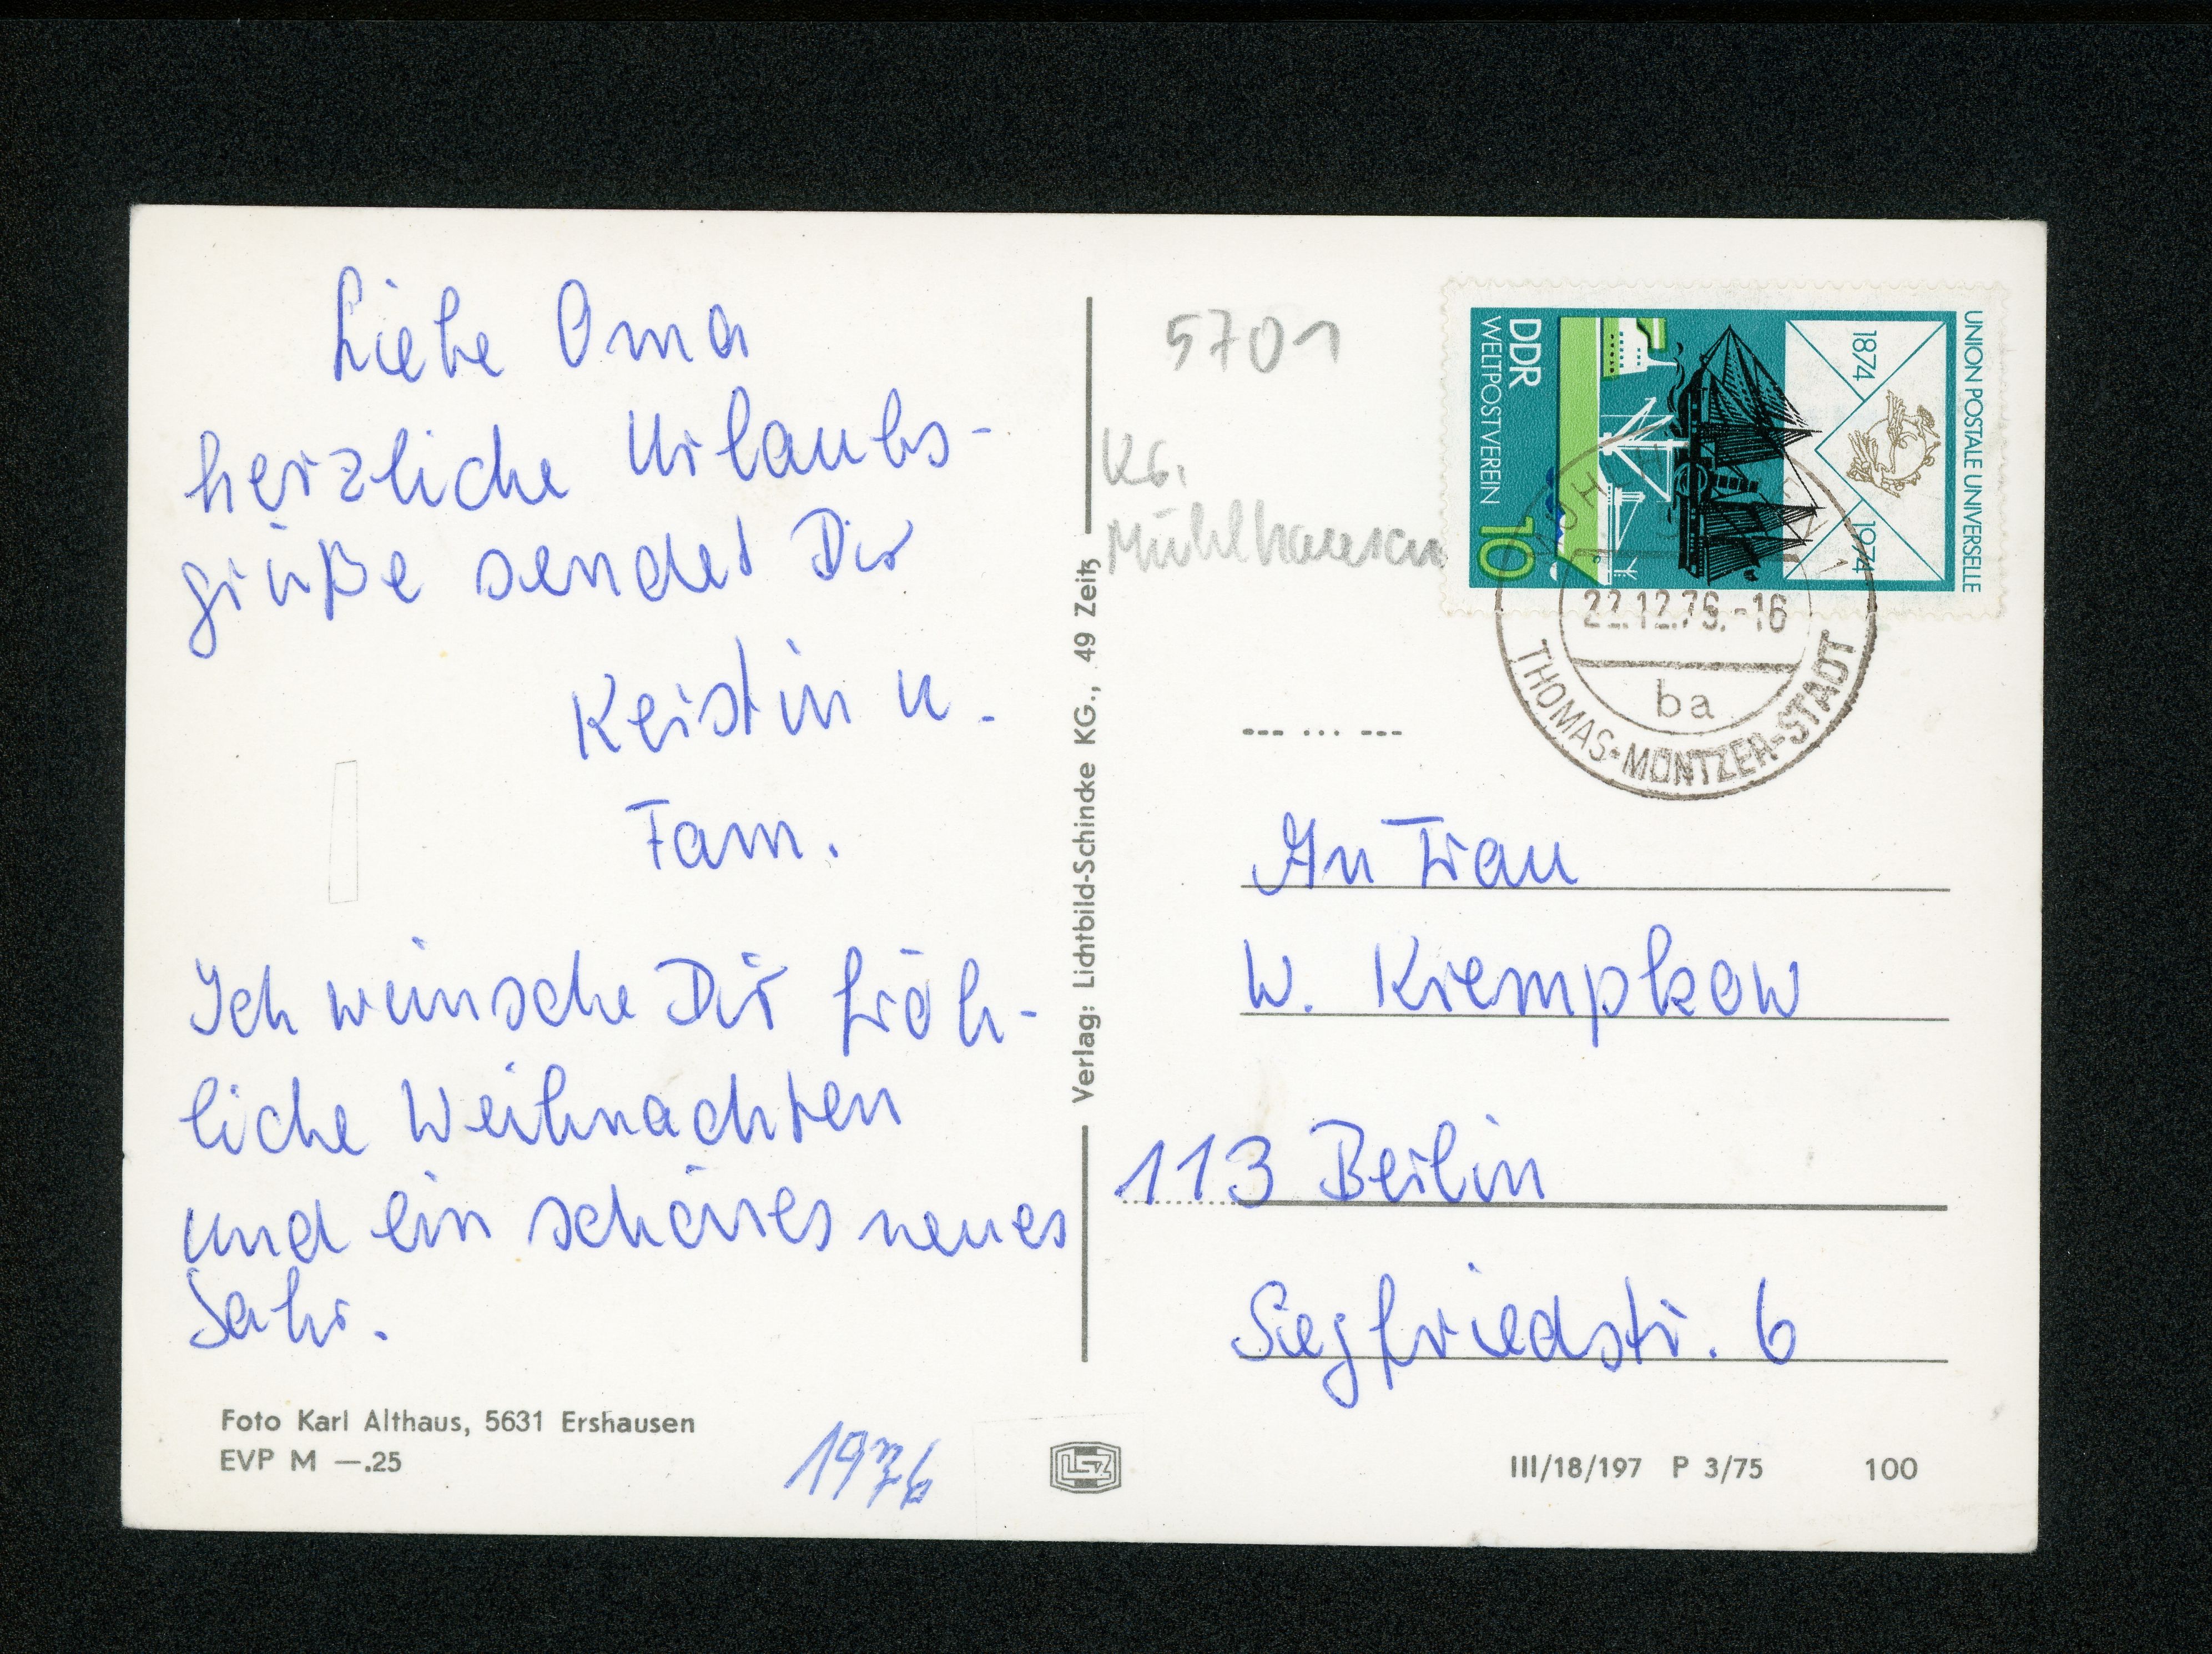 Liebe Oma
herzliche Urlaubs-
grüße sendet Dir
Kerstin u.
Fam.
Ich wünsche Dir fröh-
liche Weihnachten
und ein schönes neues
Jahr.
Foto Karl Althaus, 5631 Ershausen
EVP M —.25
1976
Verlag: Lichtbild-Schincke KG., 49 Zeitz
5701
Kr.
Mühlhausen
UNION POSTALE UNIVERSELLE
1874
1974
DDR
WELTPOSTVEREIN
10
22.12.76.-16
ba
THOMAS-MÜNTZER-STADT
An Frau
W. Krempkow
113 Berlin
Siegfriedstr. 6
III/18/197 P 3/75 100